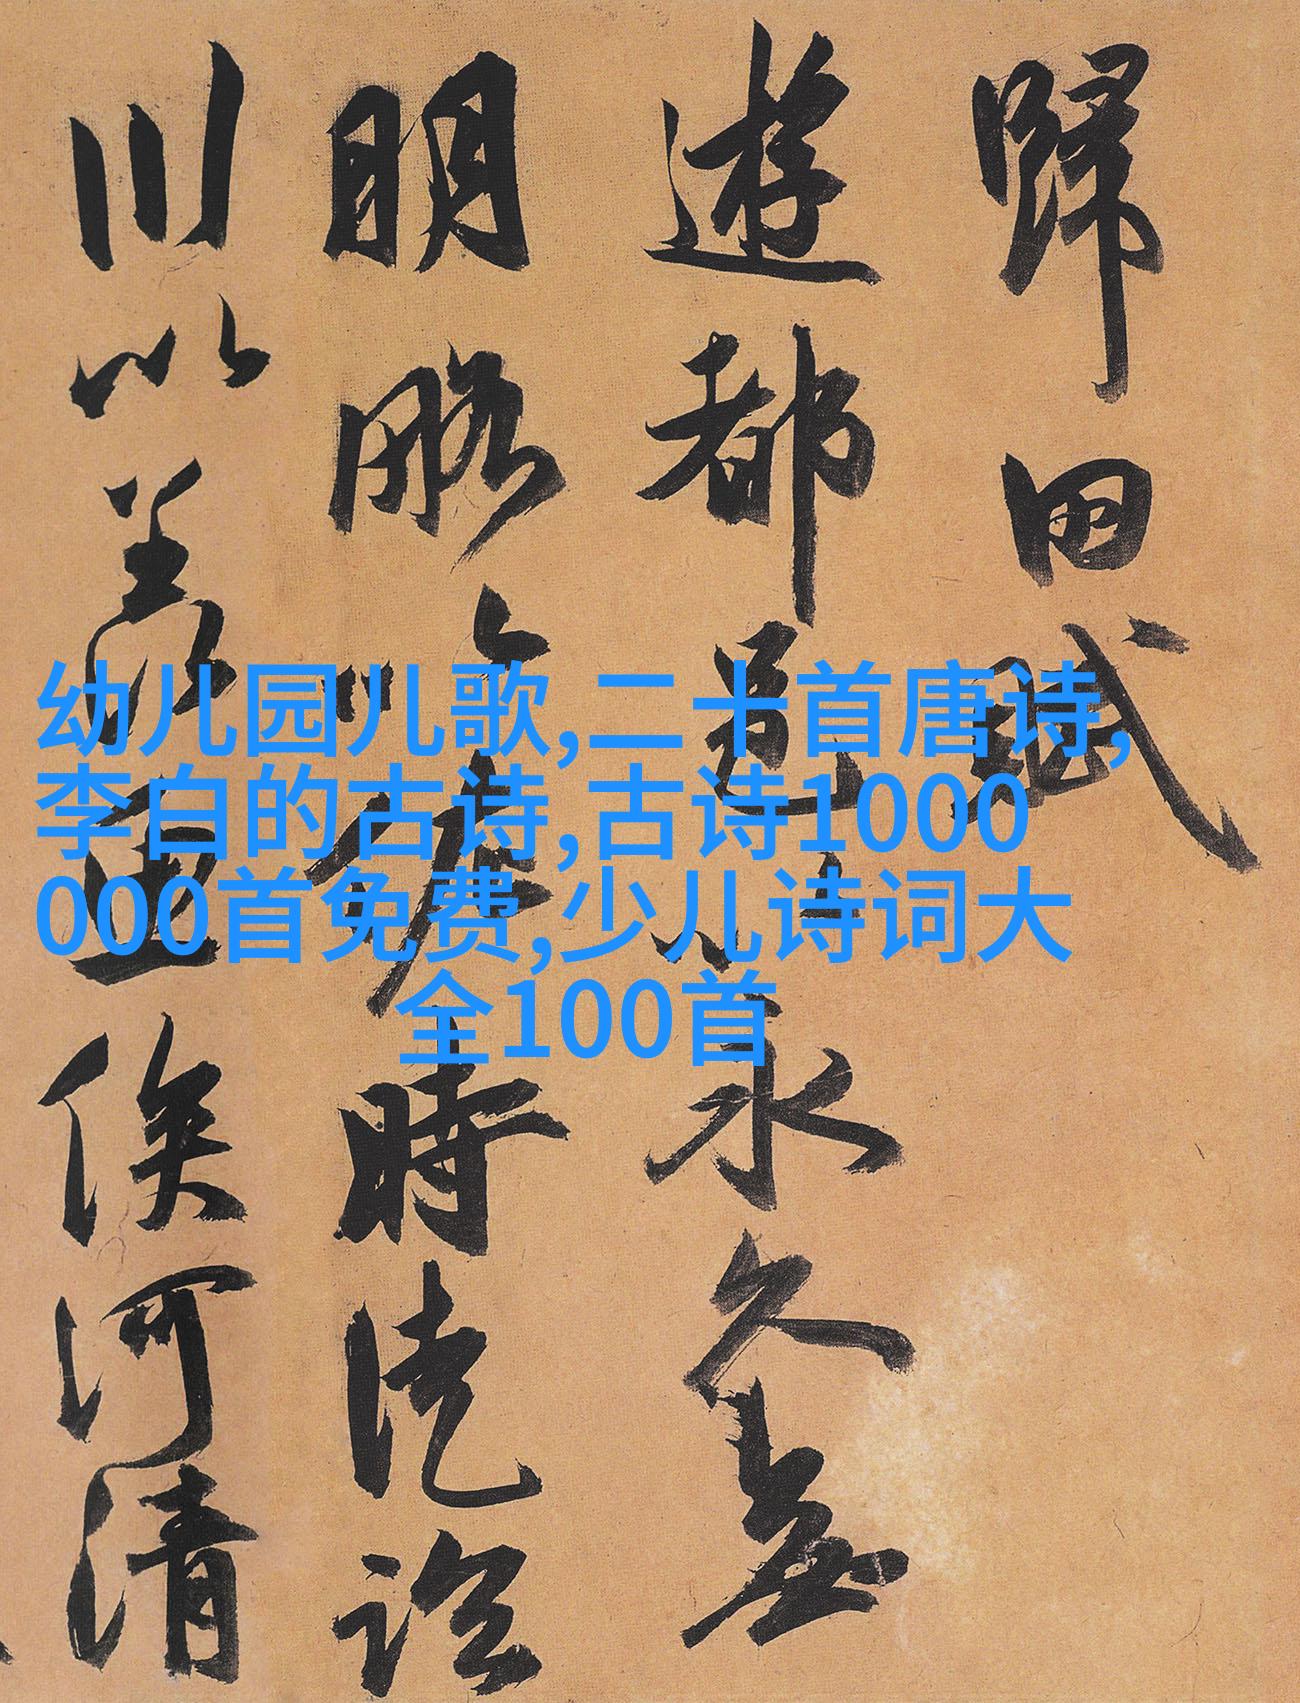 歸田賦
遊都邑以永久無
明略以佐時徒臨
川以羨魚俟河清
幼儿园儿歌,二十首唐诗,
李白的古诗,古诗1000
000首免费,少儿诗词大
全100首